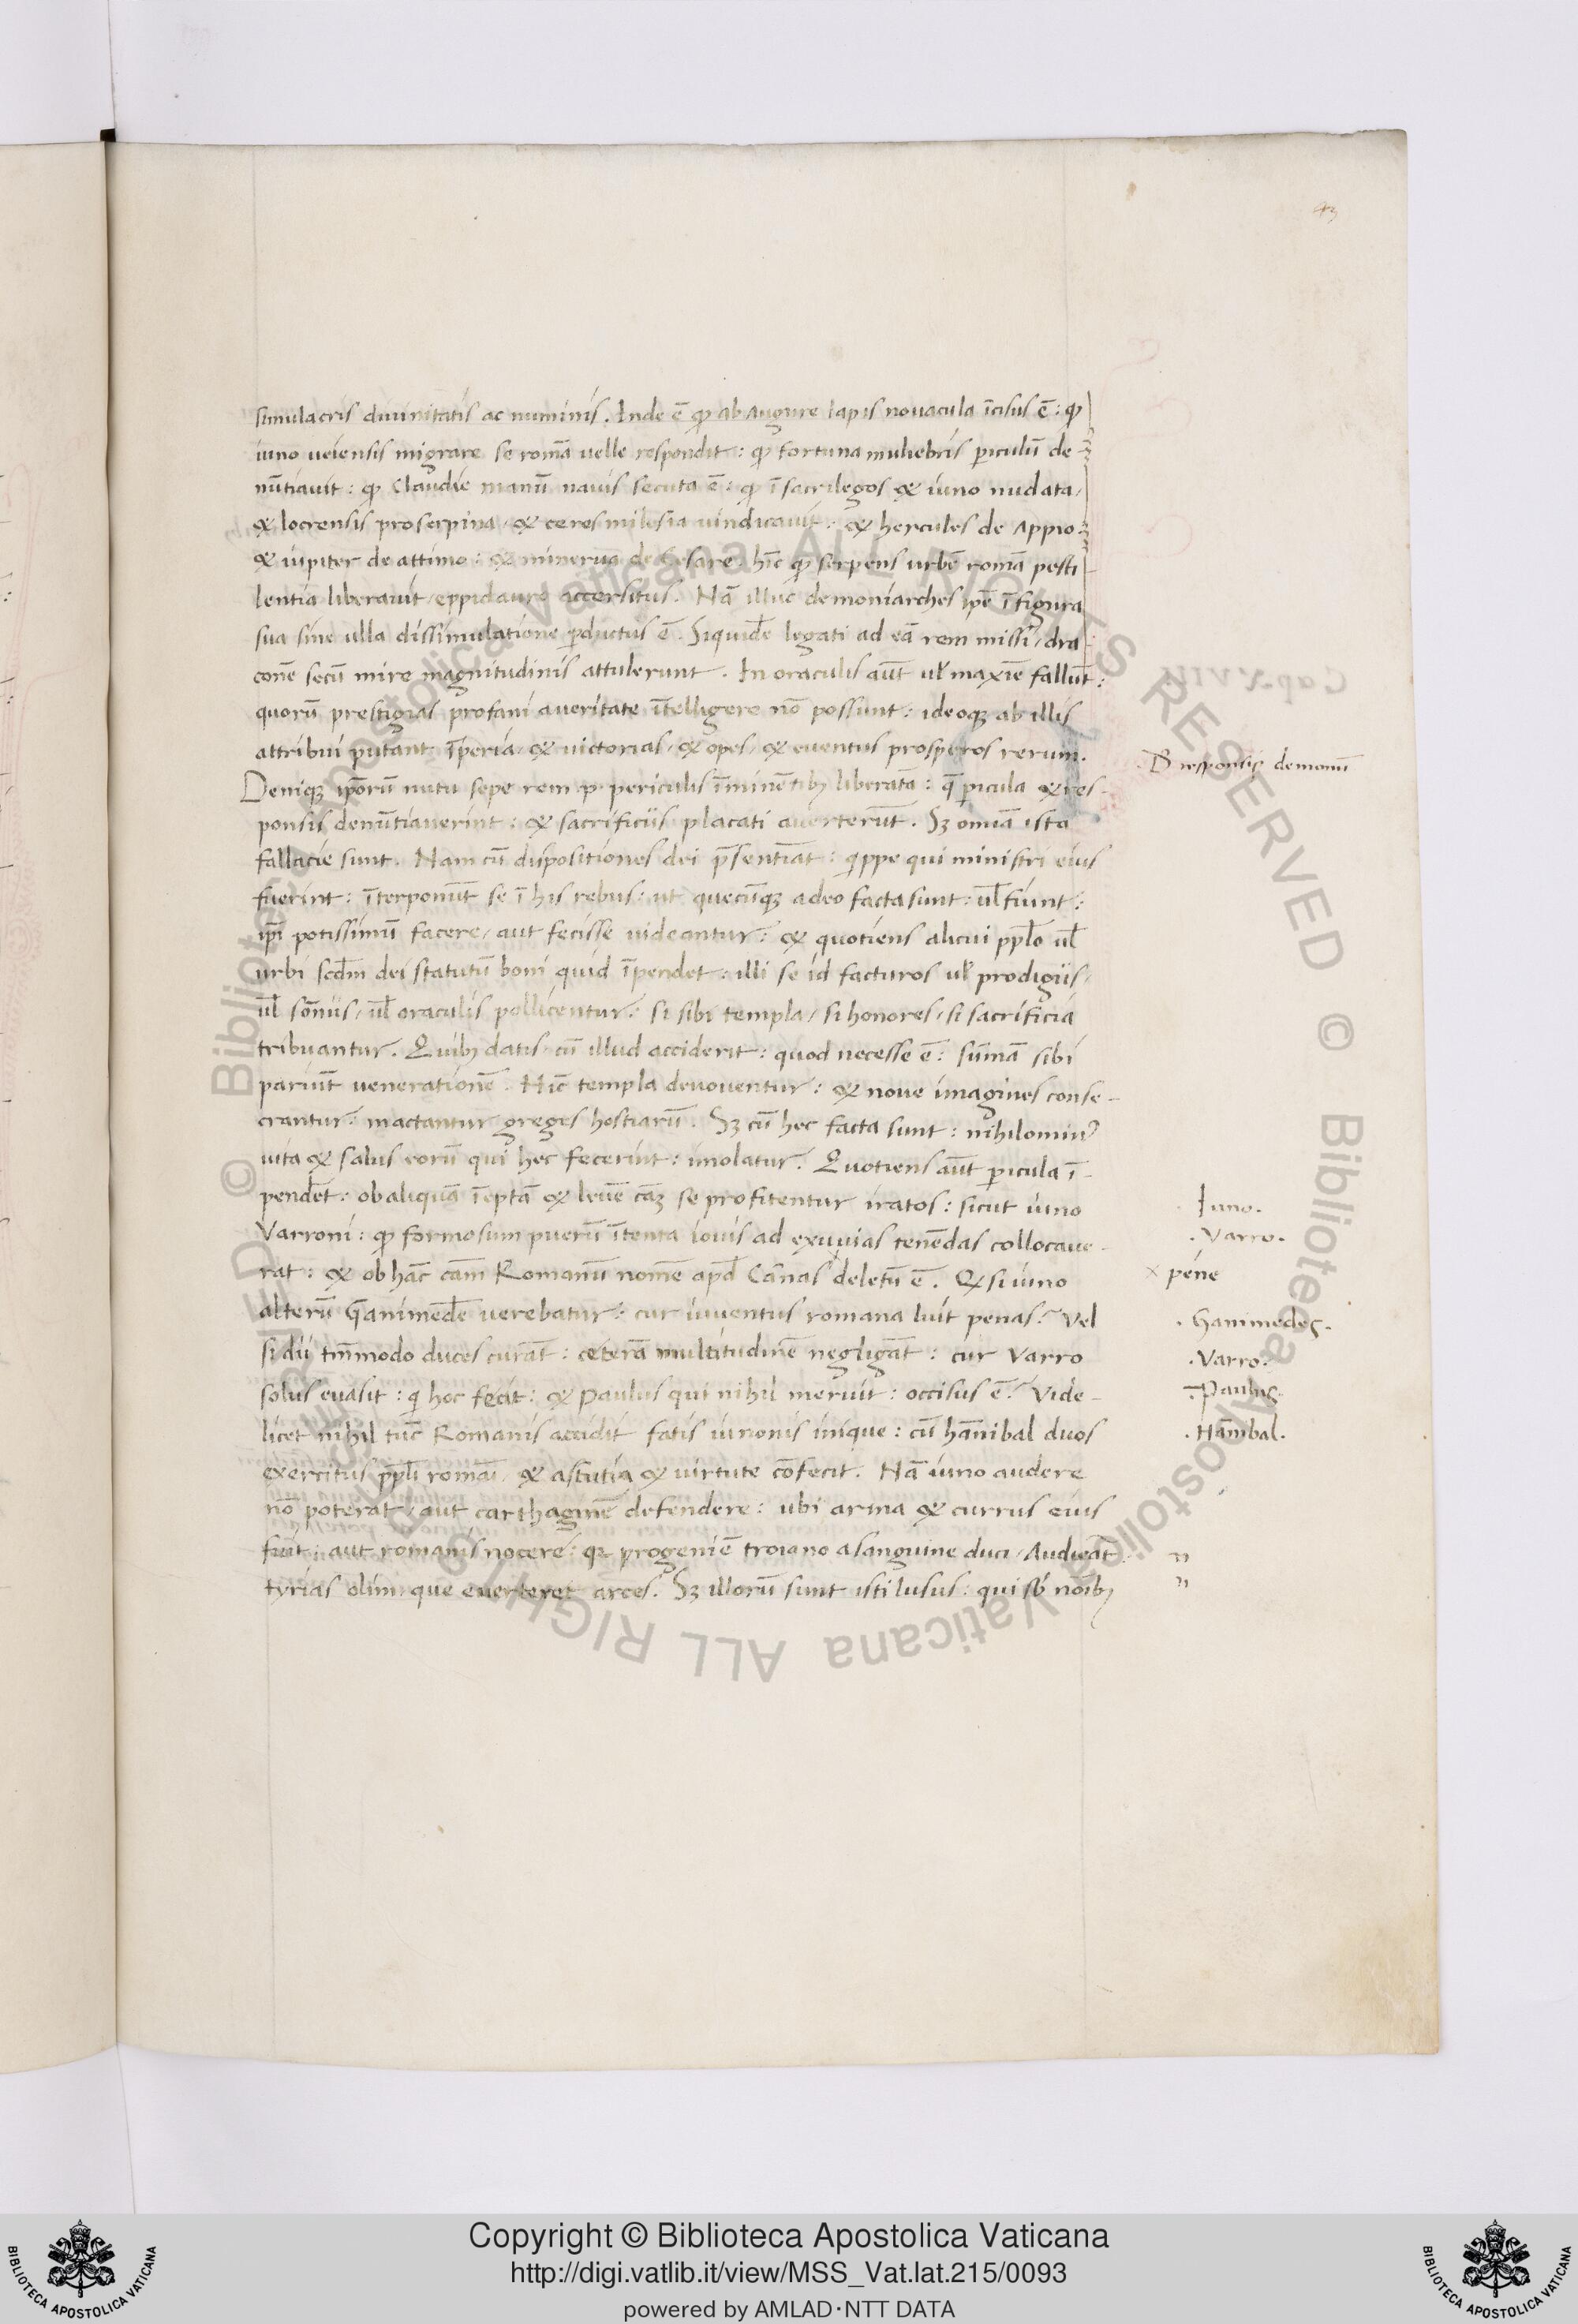 43
simulacris divinitatis ac numinis. Inde ē qđ ab augure lapis novacula īcisus ē: qđ
iuno veiensis migrare se romā velle respondit: qđ fortuna muliebris periculū de
nūtiavit: qđ Claudie manū navis secuta ē: qđ ī sacrilegos & iuno nudata,
& locrensis proserpina, & ceres milesia vindicavit: & hercules de Appio:
& iupiter de attinio: & minerva de Cesare. hīc qđ serpens urbē romā pesti
lentia liberavit, eppidauro accersitus. Nā illuc demoniarches ipē ī figura
sua sine ulla dissimulatione perductus ē. Siquidē legati ad eā rem missi, dra
conē secū mire magnitudinis attulerunt. In oraculis aūt vel maxīe fallūt:
quorū prestigias profani a veritate ītelligere nō possunt: ideoqꝫ ab illis
attribui putant īperia, & victorias, & opes, & eventus prosperos rerum.
Deniqꝫ ipōrū nutu sepe rem .p. periculis īminētibꝫ liberatā: q̄ pericula & res-
ponsis denūtiaverint: & sacrificiis placati averterūt. Sꝫ omīa ista
fallacie sunt. Nam cū dispositiones dei p̄sentiāt: quippe qui ministri eius
fuerint: īterponūt se ī his rebus: ut quecūqꝫ a deo facta sunt: ul̄ fiunt:
ip̄i potissimū facere, aut fecisse videantur: & quotiens alicui pp̄lo ul̄
urbi scd̄m dei statutū boni quid īpendet: illi se id facturos vel prodigiis,
ul̄ sōniis, ul̄ oraculis pollicentur: si sibi templa, si honores, si sacrificia
tribuantur. Quibꝫ datis cū illud acciderit: quod necesse ē: sūmā sibi
pariūt venerationē. Hīc templa devoventur: & nove imagines conse-
crantur: mactantur greges hostiarū. Sꝫ cū hec facta sunt: nihilominꝰ
vita & salus eorū qui hec fecerint: imolatur. Quotiens aūt pericula ī-
pendēt: ob aliquā īeptā & levē cāꝫ se profitentur iratos: sicut iuno
Varroni: qđ formosum puerū ī tenta iovis ad exuvias tenēdas collocave-
rat: & ob hāc cām Romanū nomē apđ Cānas deletū ē. Qđ si iuno
alterū Ganimedē verebatur: cur iuventus romana luit penas? Vel
si dii tm̄modo duces curāt: ceterā multitudinē negligāt: cur Varro
solus evasit: qui hoc fecit: & Paulus qui nihil meruit: occisus ē? Vide-
licet nihil tūc Romanis accidit fatis iunonis inique: cū hānibal duos
exercitus pp̄li romāi, & astutia & virtute cōfecit. Nā iuno audere
nō poterat, aut carthaginē defendere: ubi arma & currus eius
fuit: aut romanis nocere: qꝫ progeniē troiano a sanguine duci, Audierāt
tyrias olim que everteret arces. Sꝫ illorū sunt isti lusus: qui sb̄ noībꝫ
D responsis demonū
. Iuno.
. Varro.
× pene
. Ganimedes.
. Varro.
. Paulus.
. Hānibal.
Copyright © Biblioteca Apostolica Vaticana
http://digi.vatlib.it/view/MSS_Vat.lat.215/0093
powered by AMLAD·NTT DATA
BIBLIOTECA APOSTOLICA VATICANA
BIBLIOTECA APOSTOLICA VATICANA
© Biblioteca Apostolica Vaticana ALL RIGHTS RESERVED © Biblioteca Apostolica Vaticana ALL RIGHTS RESERVED